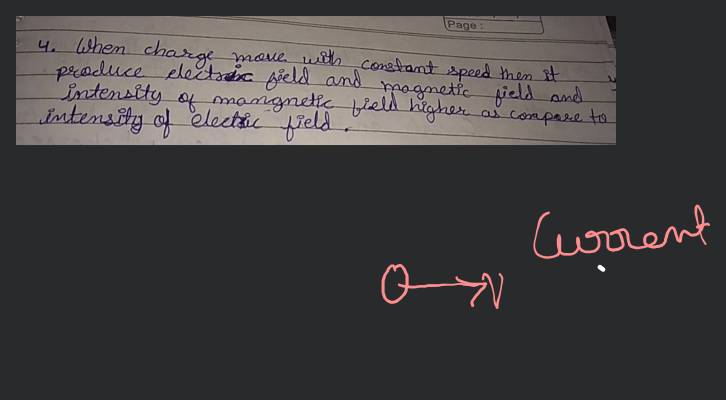 Page :
4. When charge move with constant speed then it
produce electric field and magnetic field and
intensity of mangnetic field higher as compare to
intensity of electric field.
Current
V